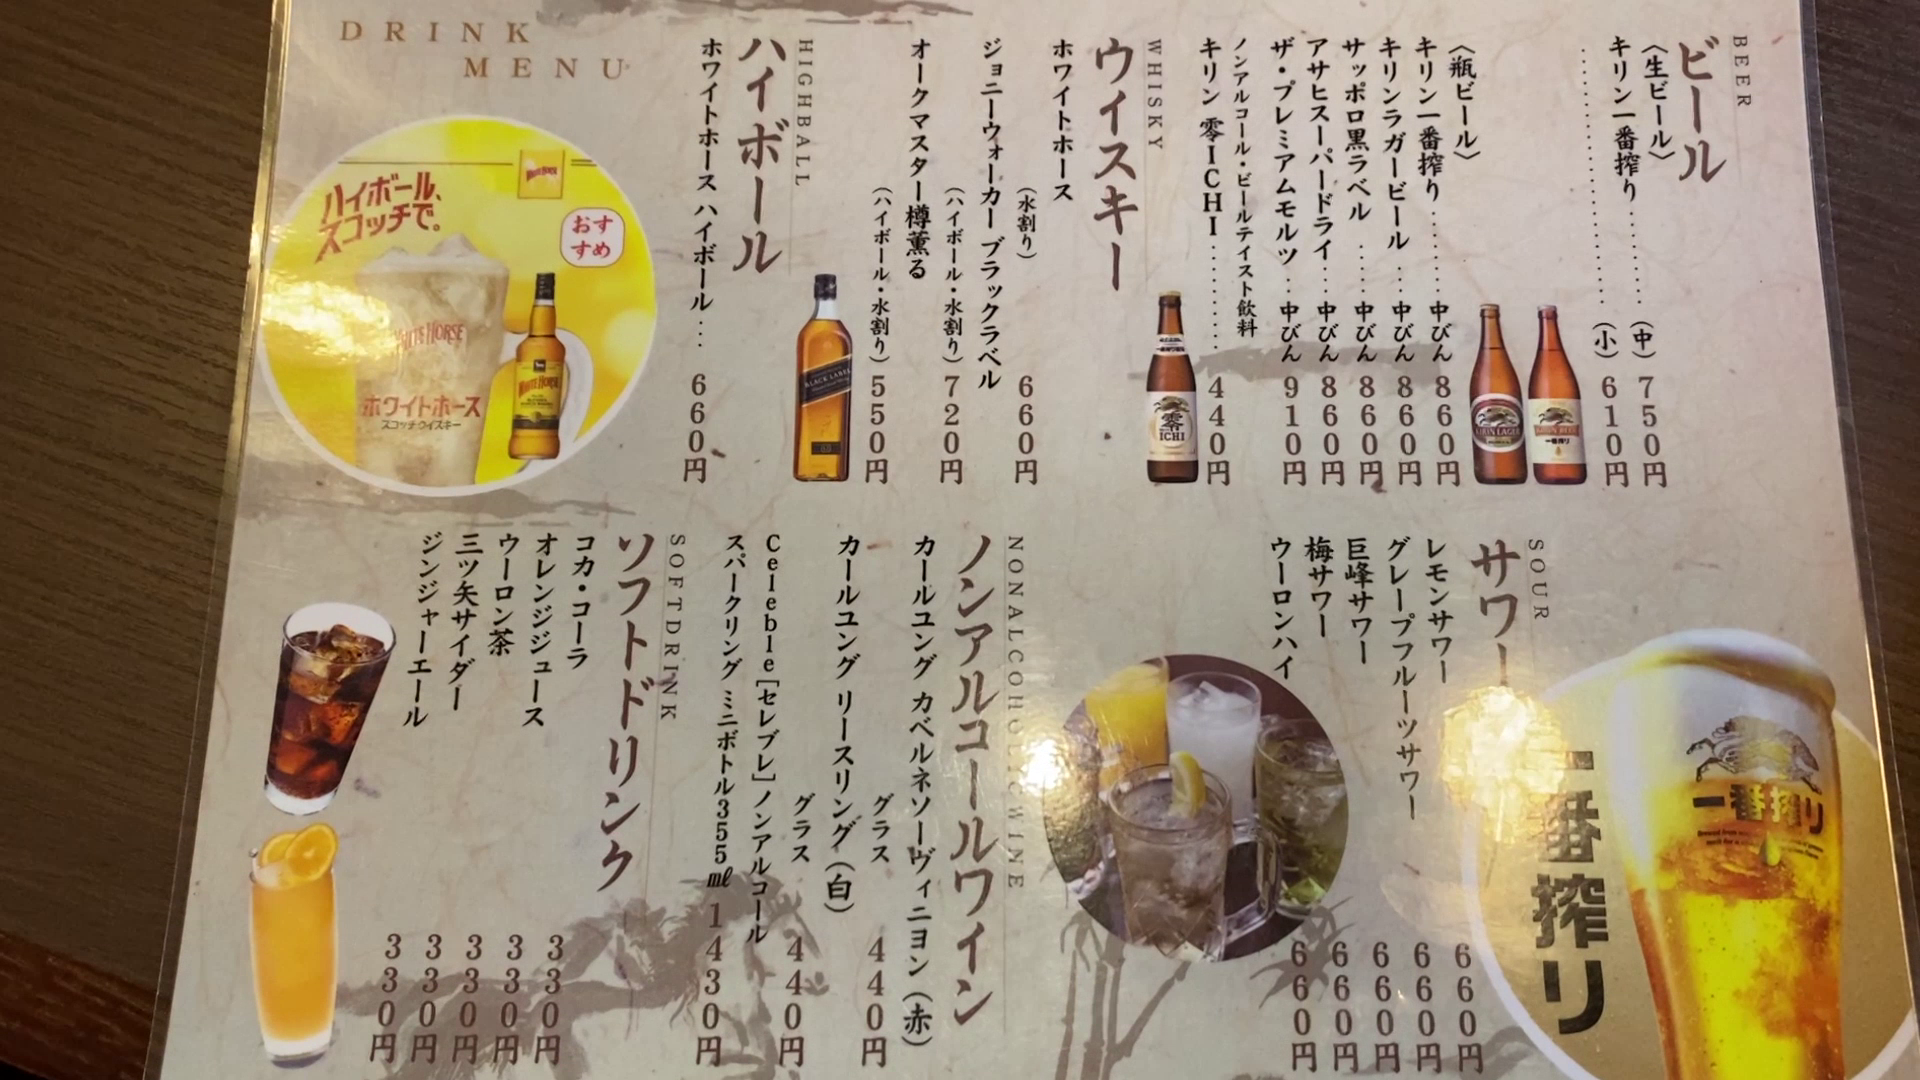 DRINK
MENU
BEER
ビール
〈生ビール〉
キリン一番搾り……… (中) 750円
………………… (小) 610円
〈瓶ビール〉
キリン一番搾り……… 中びん 860円
キリンラガービール… 中びん 860円
サッポロ黒ラベル …… 中びん 860円
アサヒスーパードライ… 中びん 860円
ザ・プレミアムモルツ… 中びん 910円
ノンアルコール・ビールテイスト飲料
キリン 零ICHI………… 440円
零
ICHI
WHISKY
ウイスキー
ホワイトホース
(水割り) 660円
ジョニーウォーカー ブラックラベル
(ハイボール・水割り) 720円
オークマスター樽薫る
(ハイボール・水割り) 550円
BLACK LABEL
HIGHBALL
ハイボール
ホワイトホース ハイボール… 660円
ハイボール、
スコッチで。
おす
すめ
WHITE HORSE
WHITE HORSE
ホワイトホース
スコッチウイスキー
SOUR
サワー
レモンサワー 660円
グレープフルーツサワー 660円
巨峰サワー 660円
梅サワー 660円
ウーロンハイ 660円
一番搾り
一番搾り
NONALCOHOLIC WINE
ノンアルコールワイン
カールユング カベルネソーヴィニヨン(赤)
グラス 440円
カールユング リースリング(白)
グラス 440円
Celeble[セレブレ]ノンアルコール
スパークリング ミニボトル355㎖ 1430円
SOFTDRINK
ソフトドリンク
コカ・コーラ 330円
オレンジジュース 330円
ウーロン茶 330円
三ツ矢サイダー 330円
ジンジャーエール 330円